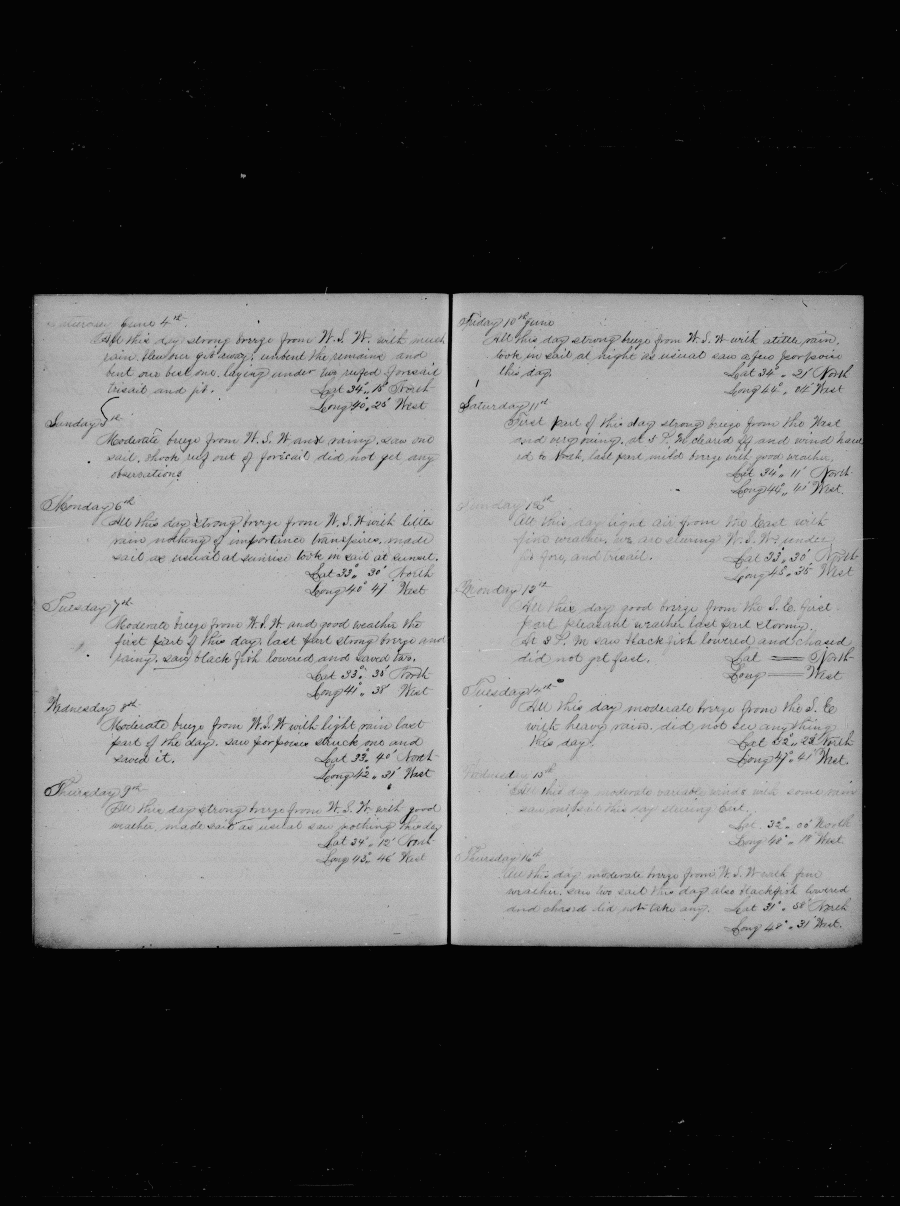 Saturday June 4th
All this day strong breeze from W.S.W. with much
rain. away. unbent the remains and
bent our best one. laying under two reefed foresail
trisail and jib. Lat 34° " 18' North
Long 40° " 25' West
Sunday 5th
Moderate breeze from W.S.W and rainy. saw one
sail, shook reef out of foresail did not get any
obserations
Monday 6th
All this day strong breeze from W.S.W with little
rain nothing of importance transpires, made
sail as usual at sunrise took in sail at sunset.
Lat 33° " 30' North
Long 40° " 47' West
Tuesday 7th
Moderate breeze from W.S.W. and good weather the
first part of this day, last part strong breeze and
rainy. saw black fish lowered and saved two.
Lat 33° " 35' North
Long 41° " 38' West
Wednesday 8th
Moderate breeze from W.S.W with light rain last
part of the day. saw porpoises struck one and
saved it. Lat 33° " 40' North
Long 42° " 31' West
Thursday 9th
All this day strong breeze from W.S.W. with good
weather, made sail as usual saw nothing this day
Lat 34° " 12' North
Long 43° " 46' West
Friday 10th June
All this day strong breeze from W.S.W with alittle rain,
took in sail at night as usual saw a few porpoise
this day. Lat 34° " 21' North
Long 44° " 04' West
Saturday 11th
First part of this day strong breeze from the West
and very raining. at 3 P.M. cleard off and wind haul
ed to North, last part mild breeze with good weather,
Lat 34° " 11' North
Long 44° " 41' West.
Sunday 12th
All this day light air from the East with
fine weather, we are steering W.S.W. under
fore, and trisail. Lat 33° " 30' North
Long 45° " 35' West
Monday 13th
All this day good breeze from the S.E. first
part pleasant weather last part stormy.
At 3 P.M saw black fish lowered and chased
did not get fast. Lat == North
Long == West
Tuesday 14th
All this day moderate breeze from the S.E
with heavy rain. did not see anything
this day. Lat 32° " 23' North
Long 47° " 41' West.
Wednesday 15th
All this day moderate variable winds with some rain
saw this day steering East.
Lat. 32° " 00' North
Long 48° " 18' West
Thursday 16th
All this day moderate breeze from W.S.W with fine
weather, saw two sail this day also blackfish lowered
and chased did not take any. Lat 31° " 58' North
Long 48° " 31' West.